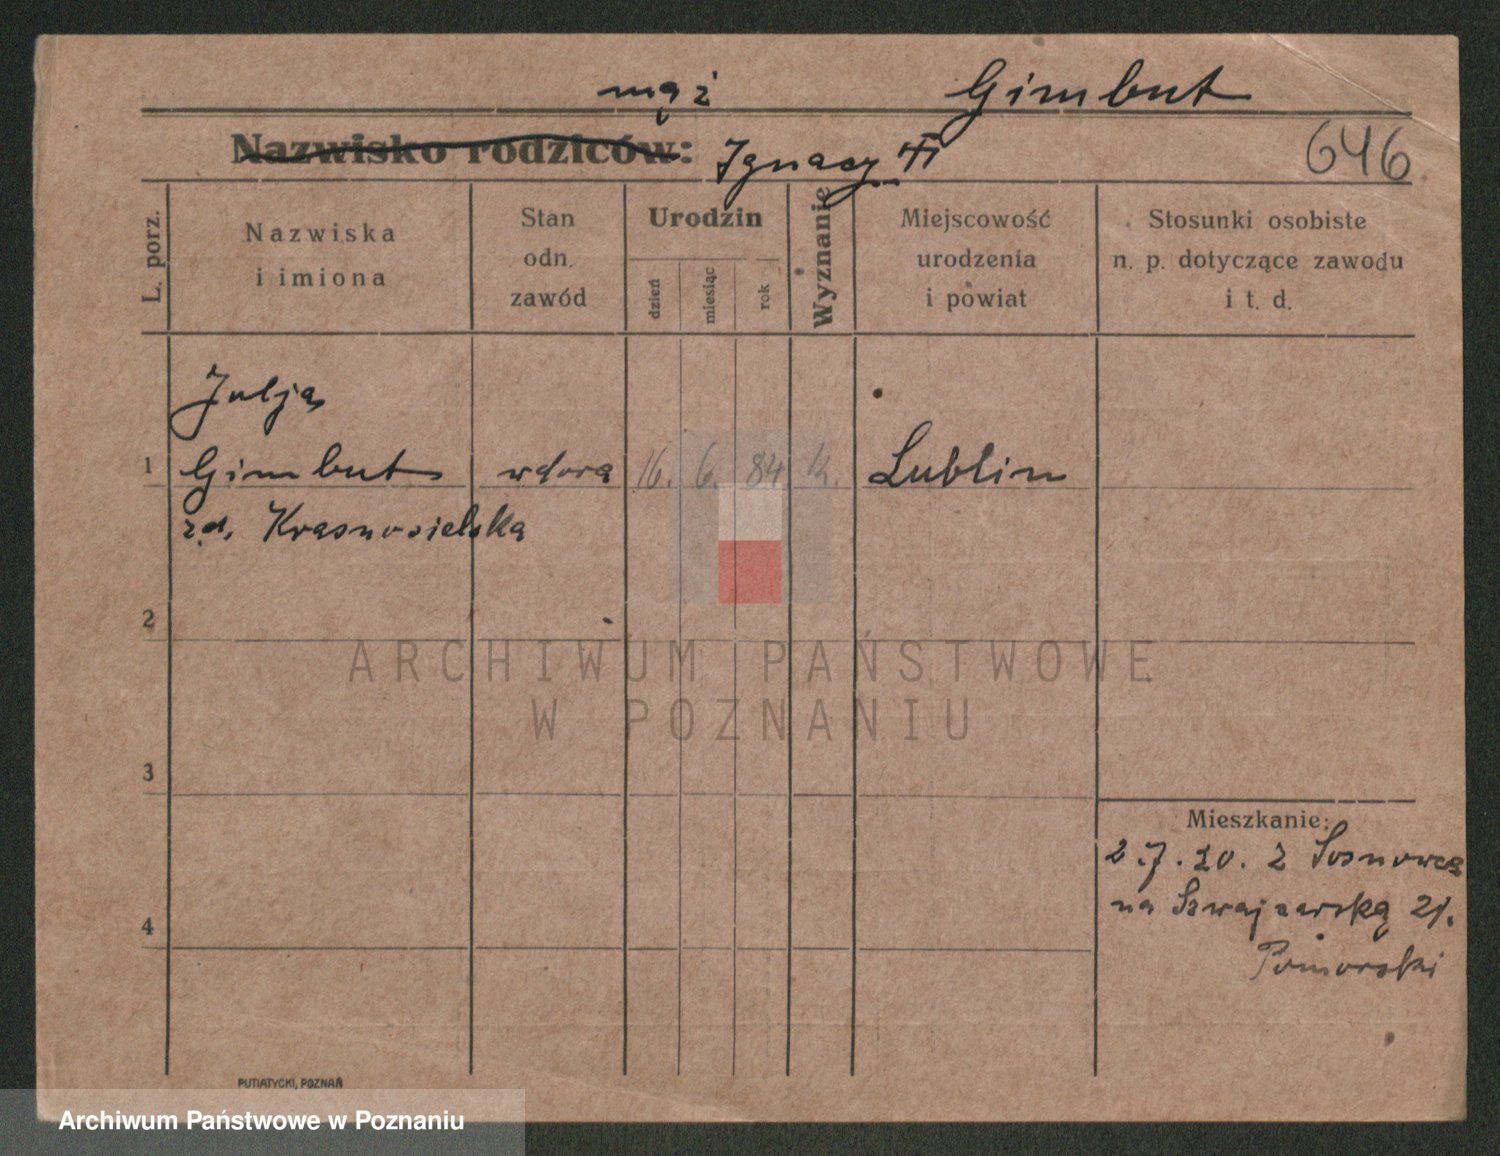 mąż Gimbut
Nazwisko rodziców: Ignacy 646
L. porz.
Nazwiska
i imiona
Stan
odn.
zawód
Urodzin
dzień
miesiąc
rok
Wyznanie
Miejscowość
urodzenia
i powiat
Stosunki osobiste
n. p. dotyczące zawodu
i t. d.
Julja
1 Gimbut wdowa 16. 6. 84 Lublin
zd. Krasnosielska
2
ARCHIWUM PAŃSTWOWE
W POZNANIU
3
Mieszkanie:
2.7.20. z Sosnowca
na Szwajcarską 21.
4
Pomorski
PUTIATYCKI, POZNAŃ
Archiwum Państwowe w Poznaniu